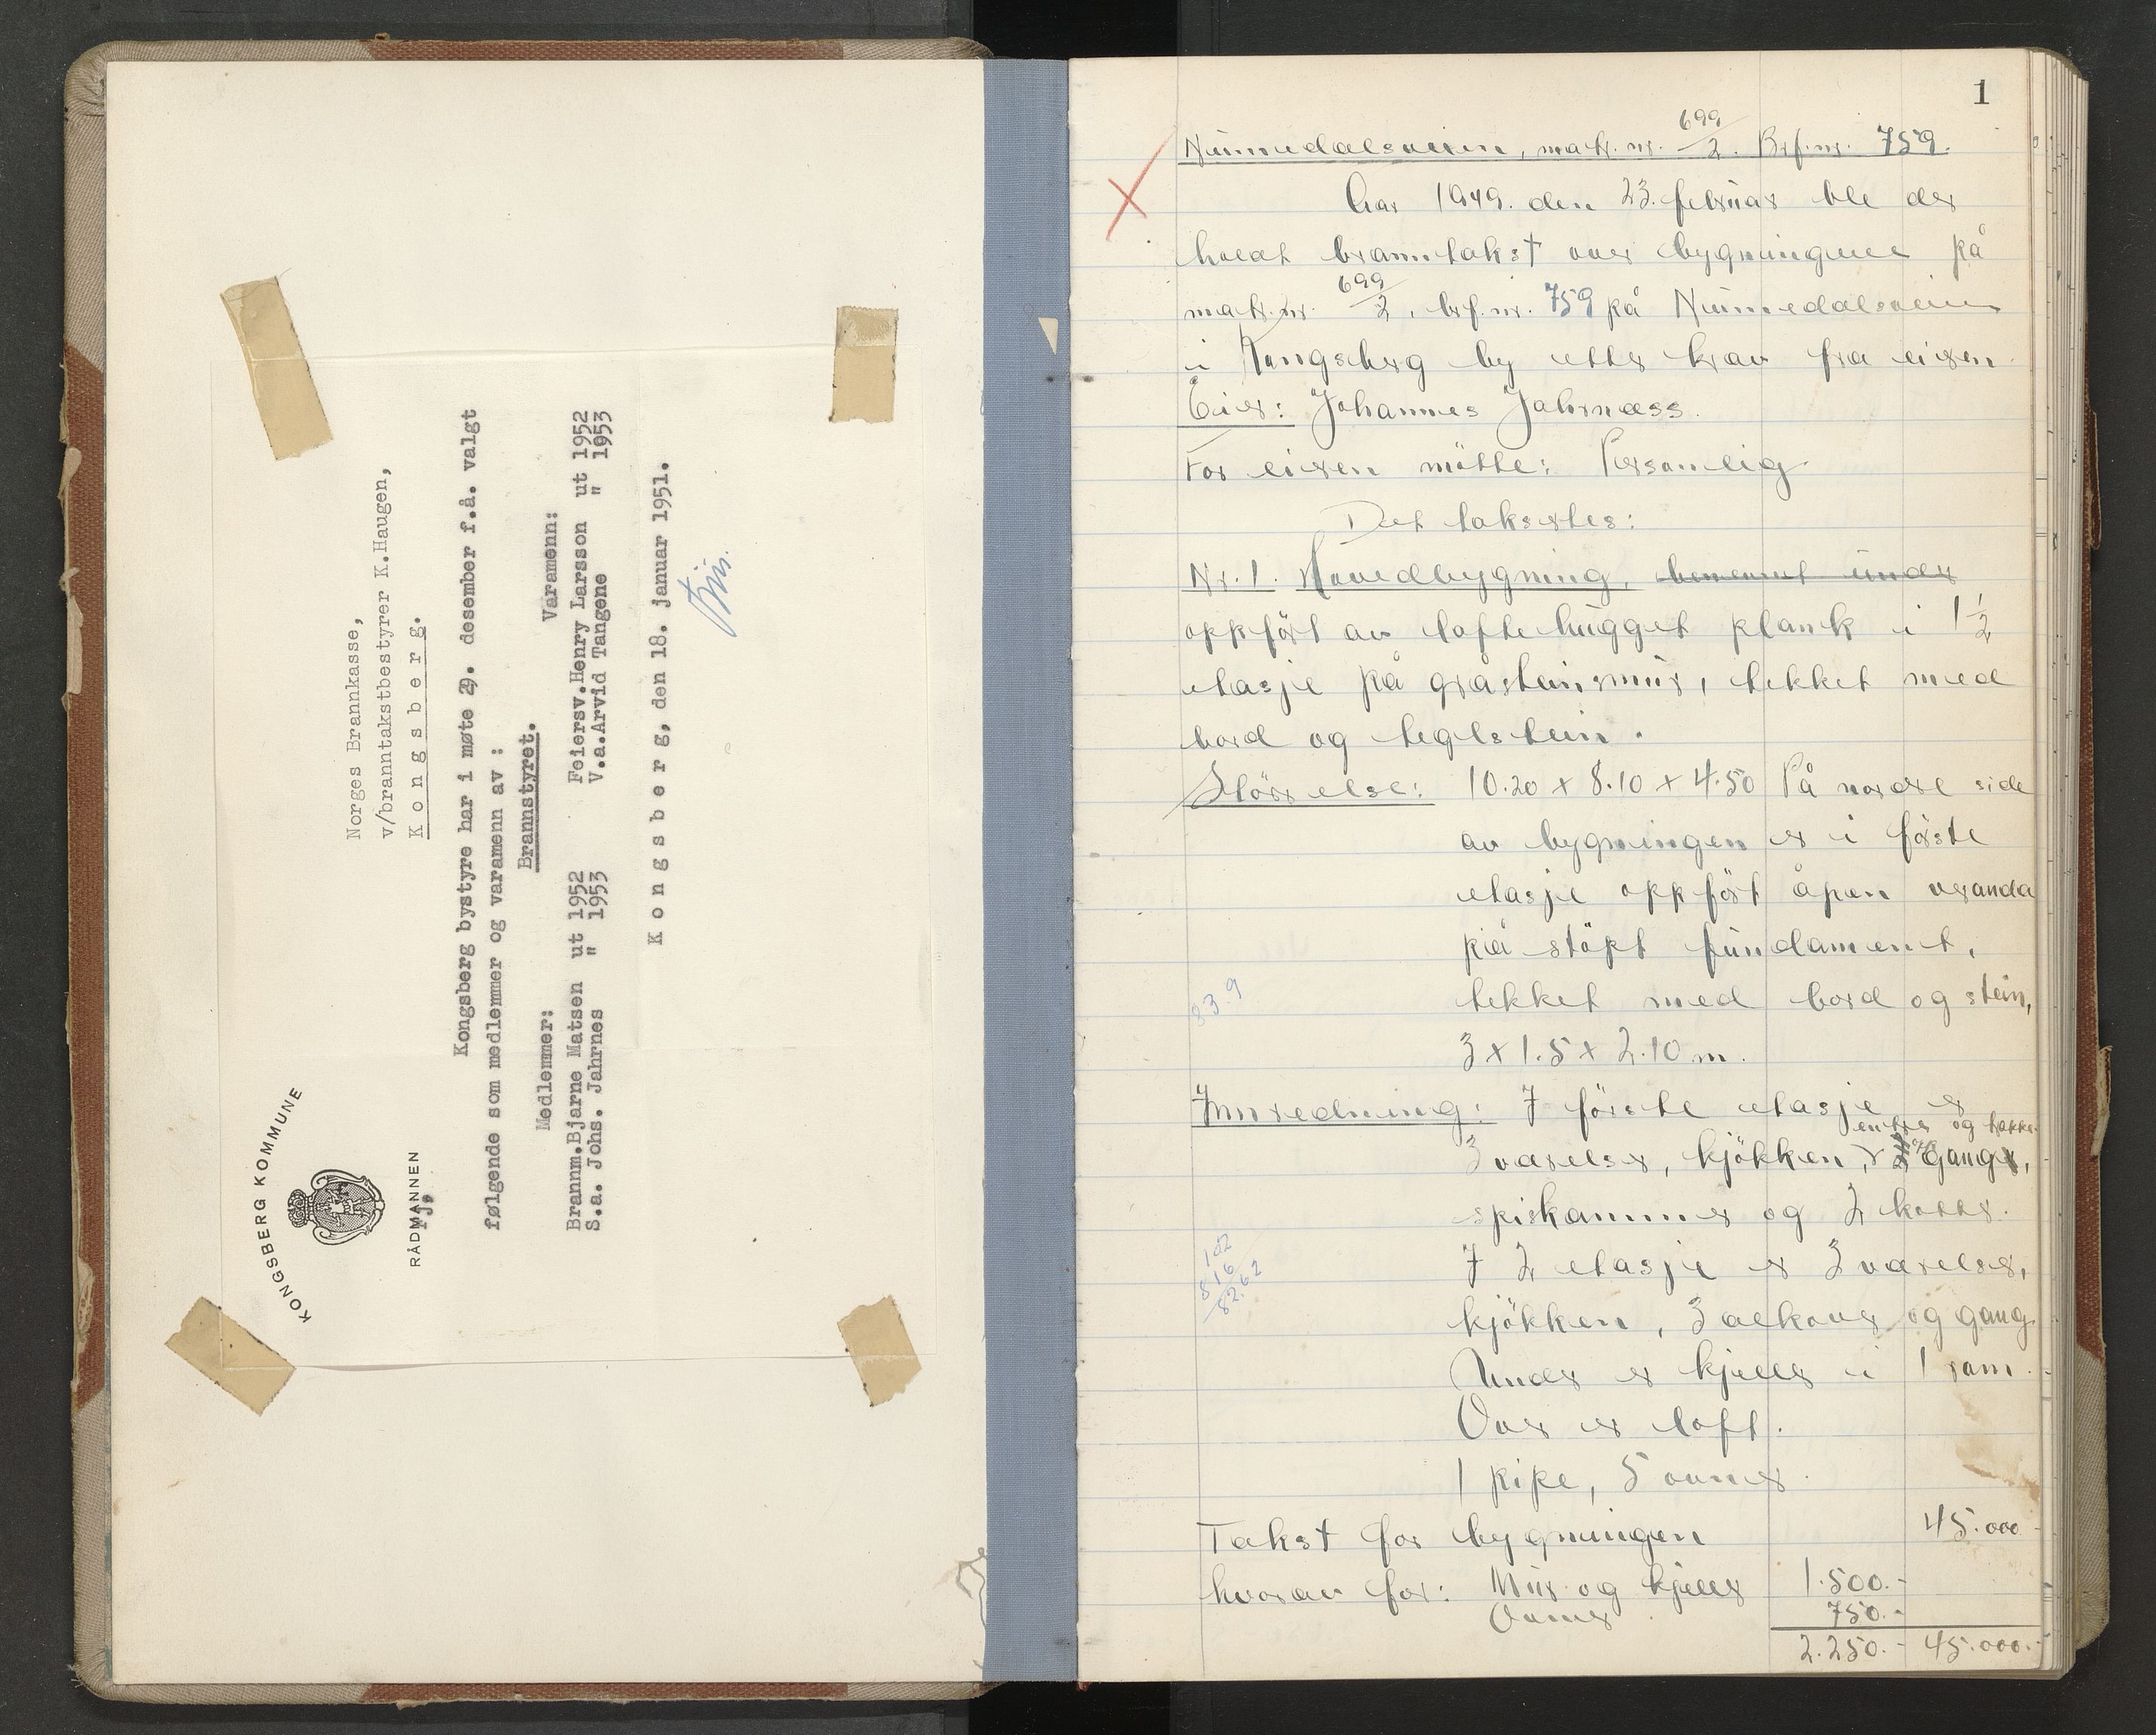 KONGSBERG KOMMUNE
RÅDMANNEN
Norges Brannkasse,
v/branntakstbestyrer K.Haugen,
K o n g s b e r g.
Kongsberg bystyre har i møte 29. desember f.å. valgt
følgende som medlemmer og varamenn av :
Brannstyret.
Medlemmer: Varamenn:
Brannm.Bjarne Matsen ut 1952 Feiersv.Henry Larsson ut 1952
S.a. Johs. Jahrnes " 1953 V.a.Arvid Tangene " 1953
K o n g s b e r g, den 18. januar 1951.
1
Numedalsveien, matr. nr. 699/2. Brf. nr. 759.
År 1949. den 23. februar ble der
holdt branntakst over bygningene på
matr. nr. 699/2, brf. nr. 759 på Numedalsveien
i Kongsberg by etter krav fra eieren.
Eier: Johannes Jahrnæss.
For eieren møtte: Personlig.
Det taksertes:
Nr. 1. Hovedbygning, benevnt under
oppført av loftehugget plank i 1 1/2
etasje på gråsteinsmur, tekket med
bord og teglstein.
Størrelse: 10.20 x 8.10 x 4.50 På nordre side
av bygningen er i første
etasje oppført åpen veranda
på støpt fundament,
tekket med bord og stein,
3 x 1.5 x 2.10 m.
33.9
Innredning: I første etasje er
entre og trappe-
3 værelser, kjøkken, gang,
spiskammer og 2 kotter.
I 2 etasje er 3 værelser,
kjøkken, 3 alkover og gang
Under er kjeller i 1 rom.
Over er loft.
1 pipe, 5 ovner.
102
516
82.62
Takst for bygningen 45.000
hvorav for: Mur og kjeller 1.500.-
Ovner 750.-
2.250.- 45.000.-